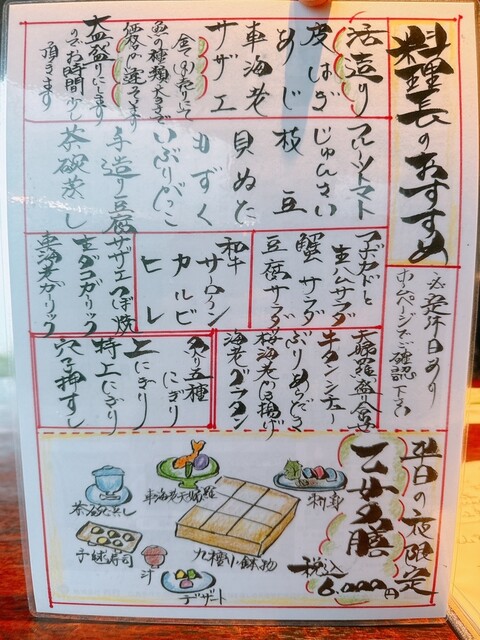 料理長のおすすめ
活造り
皮はぎ
あじ
車海老
サザエ
全て1ぱいにて
魚の種類、大きさで
価格が違ってきます
大盛りにします
のでお時間少し
頂きます
フルーツトマト
じゅんさい
枝豆
貝ぬた
もずく
いぶりがっこ
手造り豆腐
茶碗蒸し
アボカドと
生ハムサラダ
蟹サラダ
豆腐サラダ
和牛
サーロイン
カルビ
ヒレ
サザエつぼ焼
生タコガリック
車海老ガーリック
天婦羅盛り合せ
牛タンシチュー
ぶりあらだき
桜海老かき揚げ
海老グラタン
にぎり
上にぎり
特上にぎり
穴子押すし
定休日あり
ホームページをご確認下さい
平日の夜限定
乙女の膳
税込
6,000円
茶碗蒸し
車海老天婦羅
刺身
手毬寿司
汁
九種小鉢物
デザート